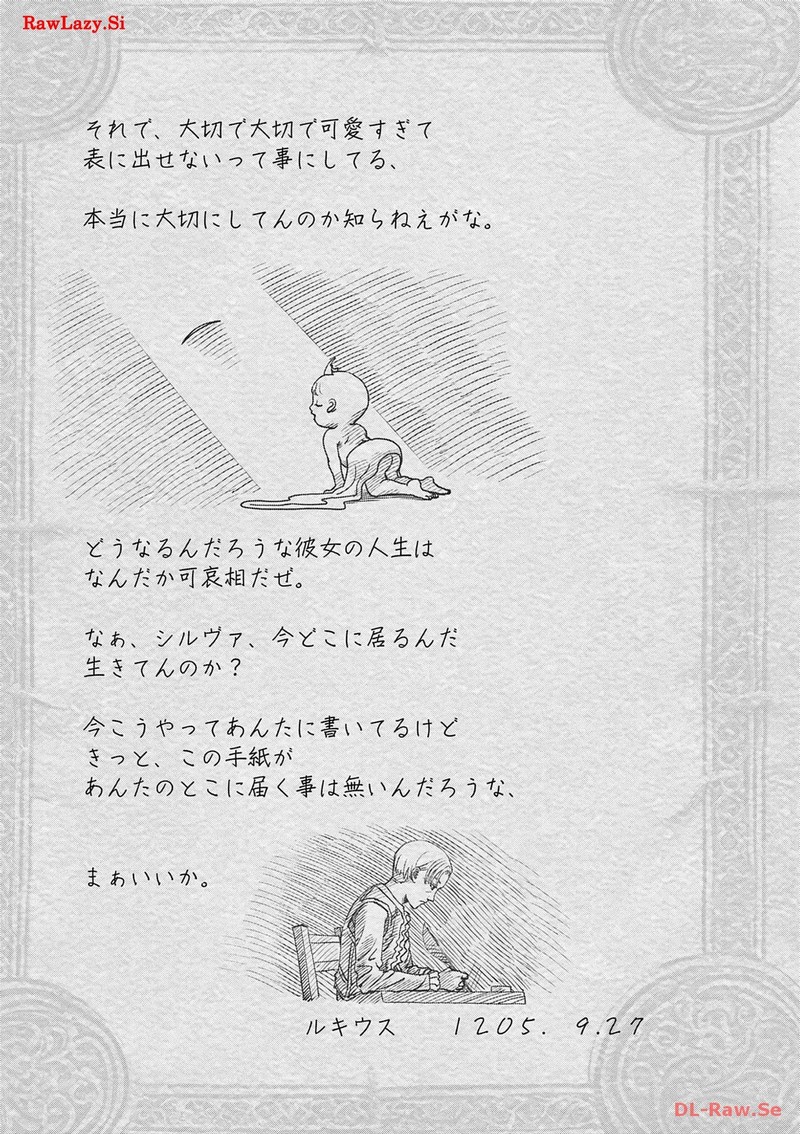 RawLazy.Si
それで、大切で大切で可愛すぎて
表に出せないって事にしてる、
本当に大切にしてんのか知らねえがな。
どうなるんだろうな彼女の人生は
なんだか可哀相だぜ。
なぁ、シルヴァ、今どこに居るんだ
生きてんのか？
今こうやってあんたに書いてるけど
きっと、この手紙が
あんたのとこに届く事は無いんだろうな、
まぁいいか。
ルキウス 1205. 9.27
DL-Raw.Se